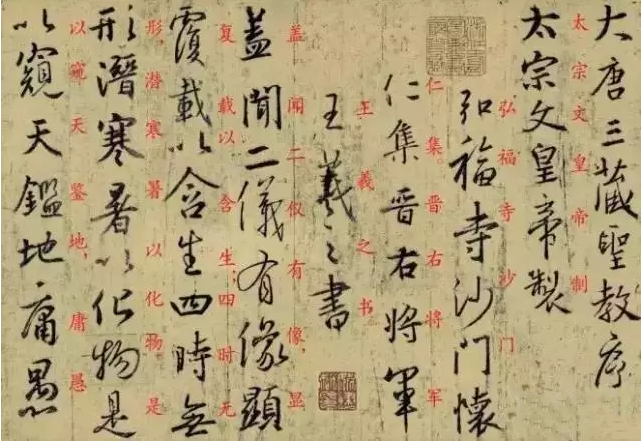 大唐三藏聖教序
太宗文皇帝制
太宗文皇帝製
弘福寺沙门
弘福寺沙門懷
仁集。晋右将军
仁集晉右將軍
王羲之书
王羲之書
盖闻二仪有像,显
蓋聞二儀有像顯
复载以含生;四时无
覆載以含生四時無
形,潜寒暑以化物。是
形潛寒暑以化物是
以窥天鉴地,庸愚
以窺天鑑地庸愚